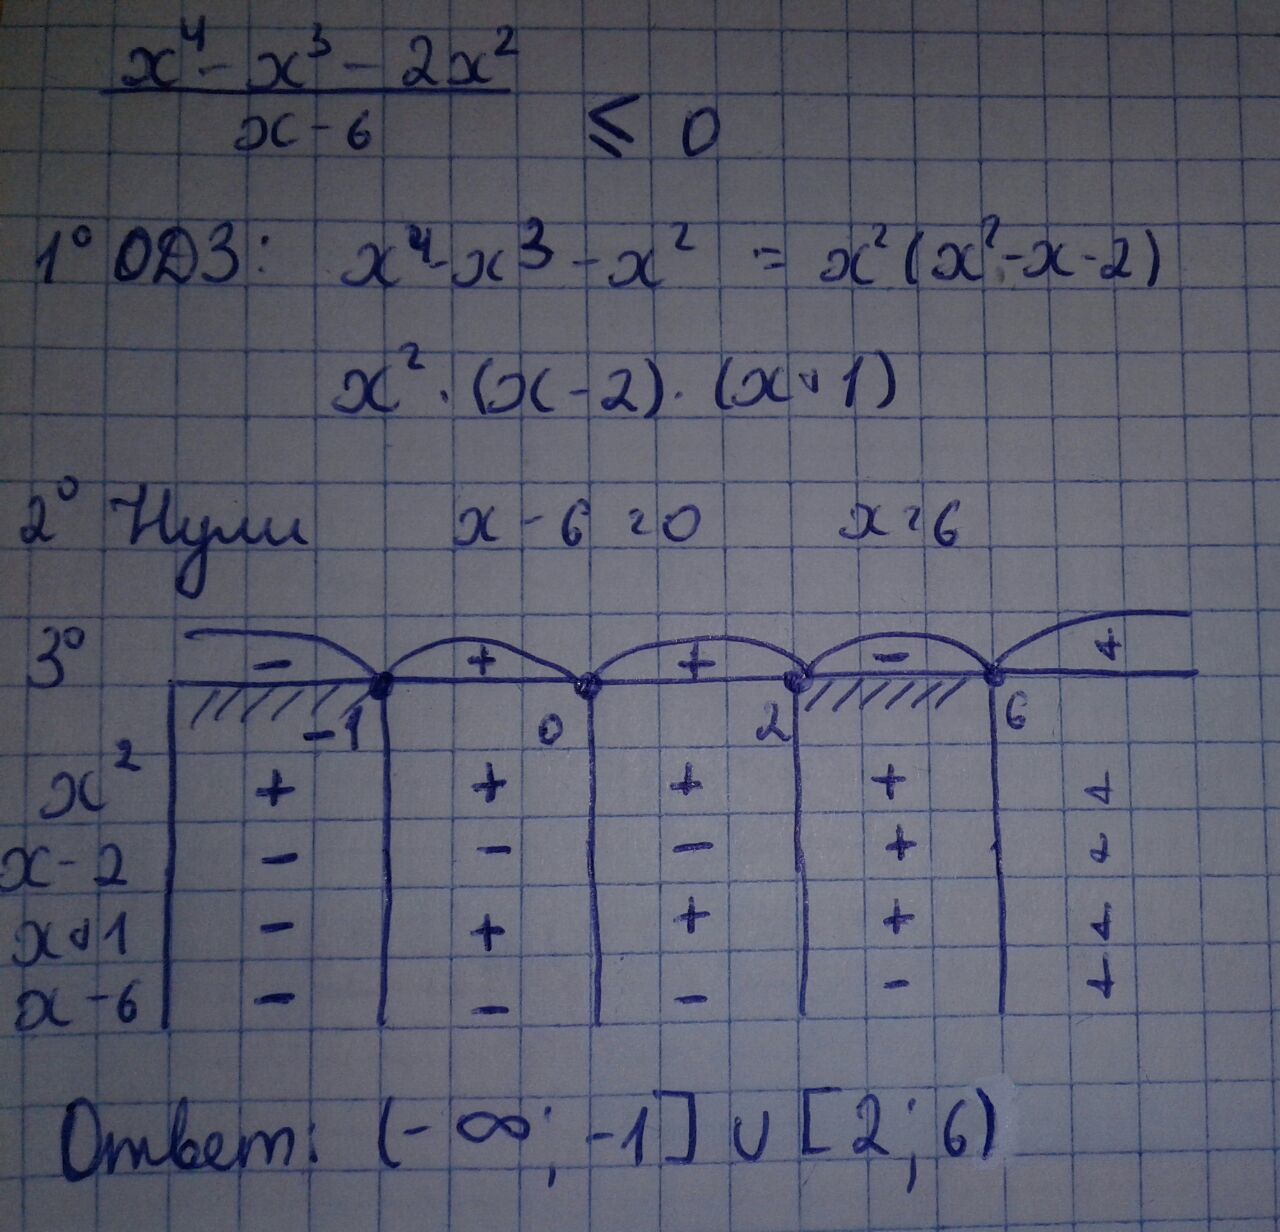 x⁴ - x³ - 2x²
x - 6
≤ 0
1° ОДЗ: x⁴ - x³ - x² = x²(x² - x - 2)
x² · (x - 2) · (x + 1)
2° Нули x - 6 = 0 x = 6
3° - + + - +
-1 0 2 6
x² + + + + +
x - 2 - - - + +
x + 1 - + + + +
x - 6 - - - - +
Ответ: (-∞; -1] ∪ [2; 6)